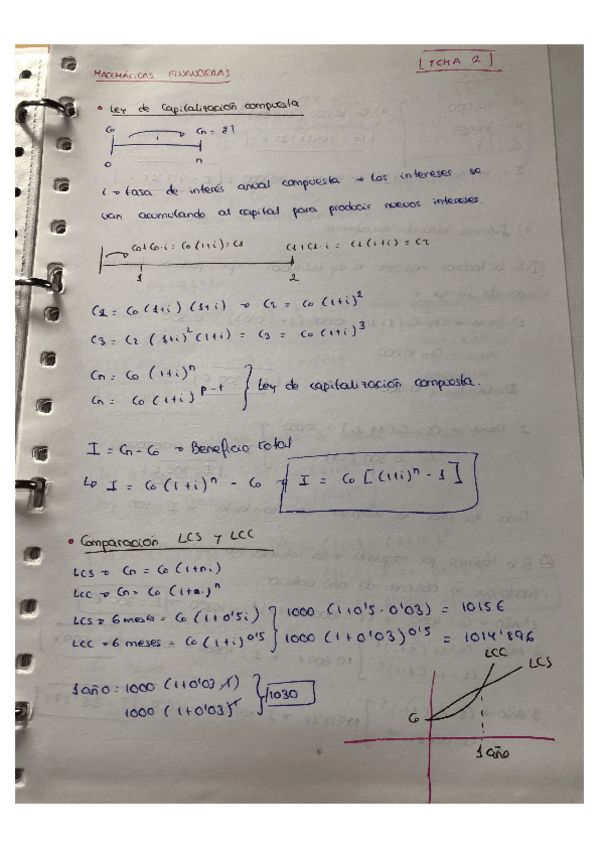 MATEMÁTICAS FINANCIERAS
[TEMA 2]
• Ley de Capitalización compuesta
C0 Cn = ?
i
0 n
i → tasa de interés anual compuesta → Los intereses se
van acumulando al capital para producir nuevos intereses.
C0+C0·i = C0(1+i) = C1 C1+C1·i = C1(1+i) = C2
1 2
C2 = C0 (1+i) (1+i) → C2 = C0 (1+i)^2
C3 = C2 (1+i)^2 (1+i) = C3 = C0 (1+i)^3
Cn = C0 (1+i)^n
Cn = C0 (1+i)^p-t } Ley de capitalización compuesta.
I = Cn - C0 → Beneficio total
↳ I = C0 (1+i)^n - C0 → I = C0 [(1+i)^n - 1]
• Comparación LCS y LCC
LCS → Cn = C0 (1+n·i)
LCC → Cn = C0 (1+i)^n
LCS → 6 meses = C0 (1+0'5i) } 1000 (1+0'5·0'03) = 1015€
LCC → 6 meses = C0 (1+i)^0'5 } 1000 (1+0'03)^0'5 = 1014'89€
1 año: 1000 (1+0'03·1)
1000 (1+0'03)^1 } 1030
LCC
LCS
C0
1 año